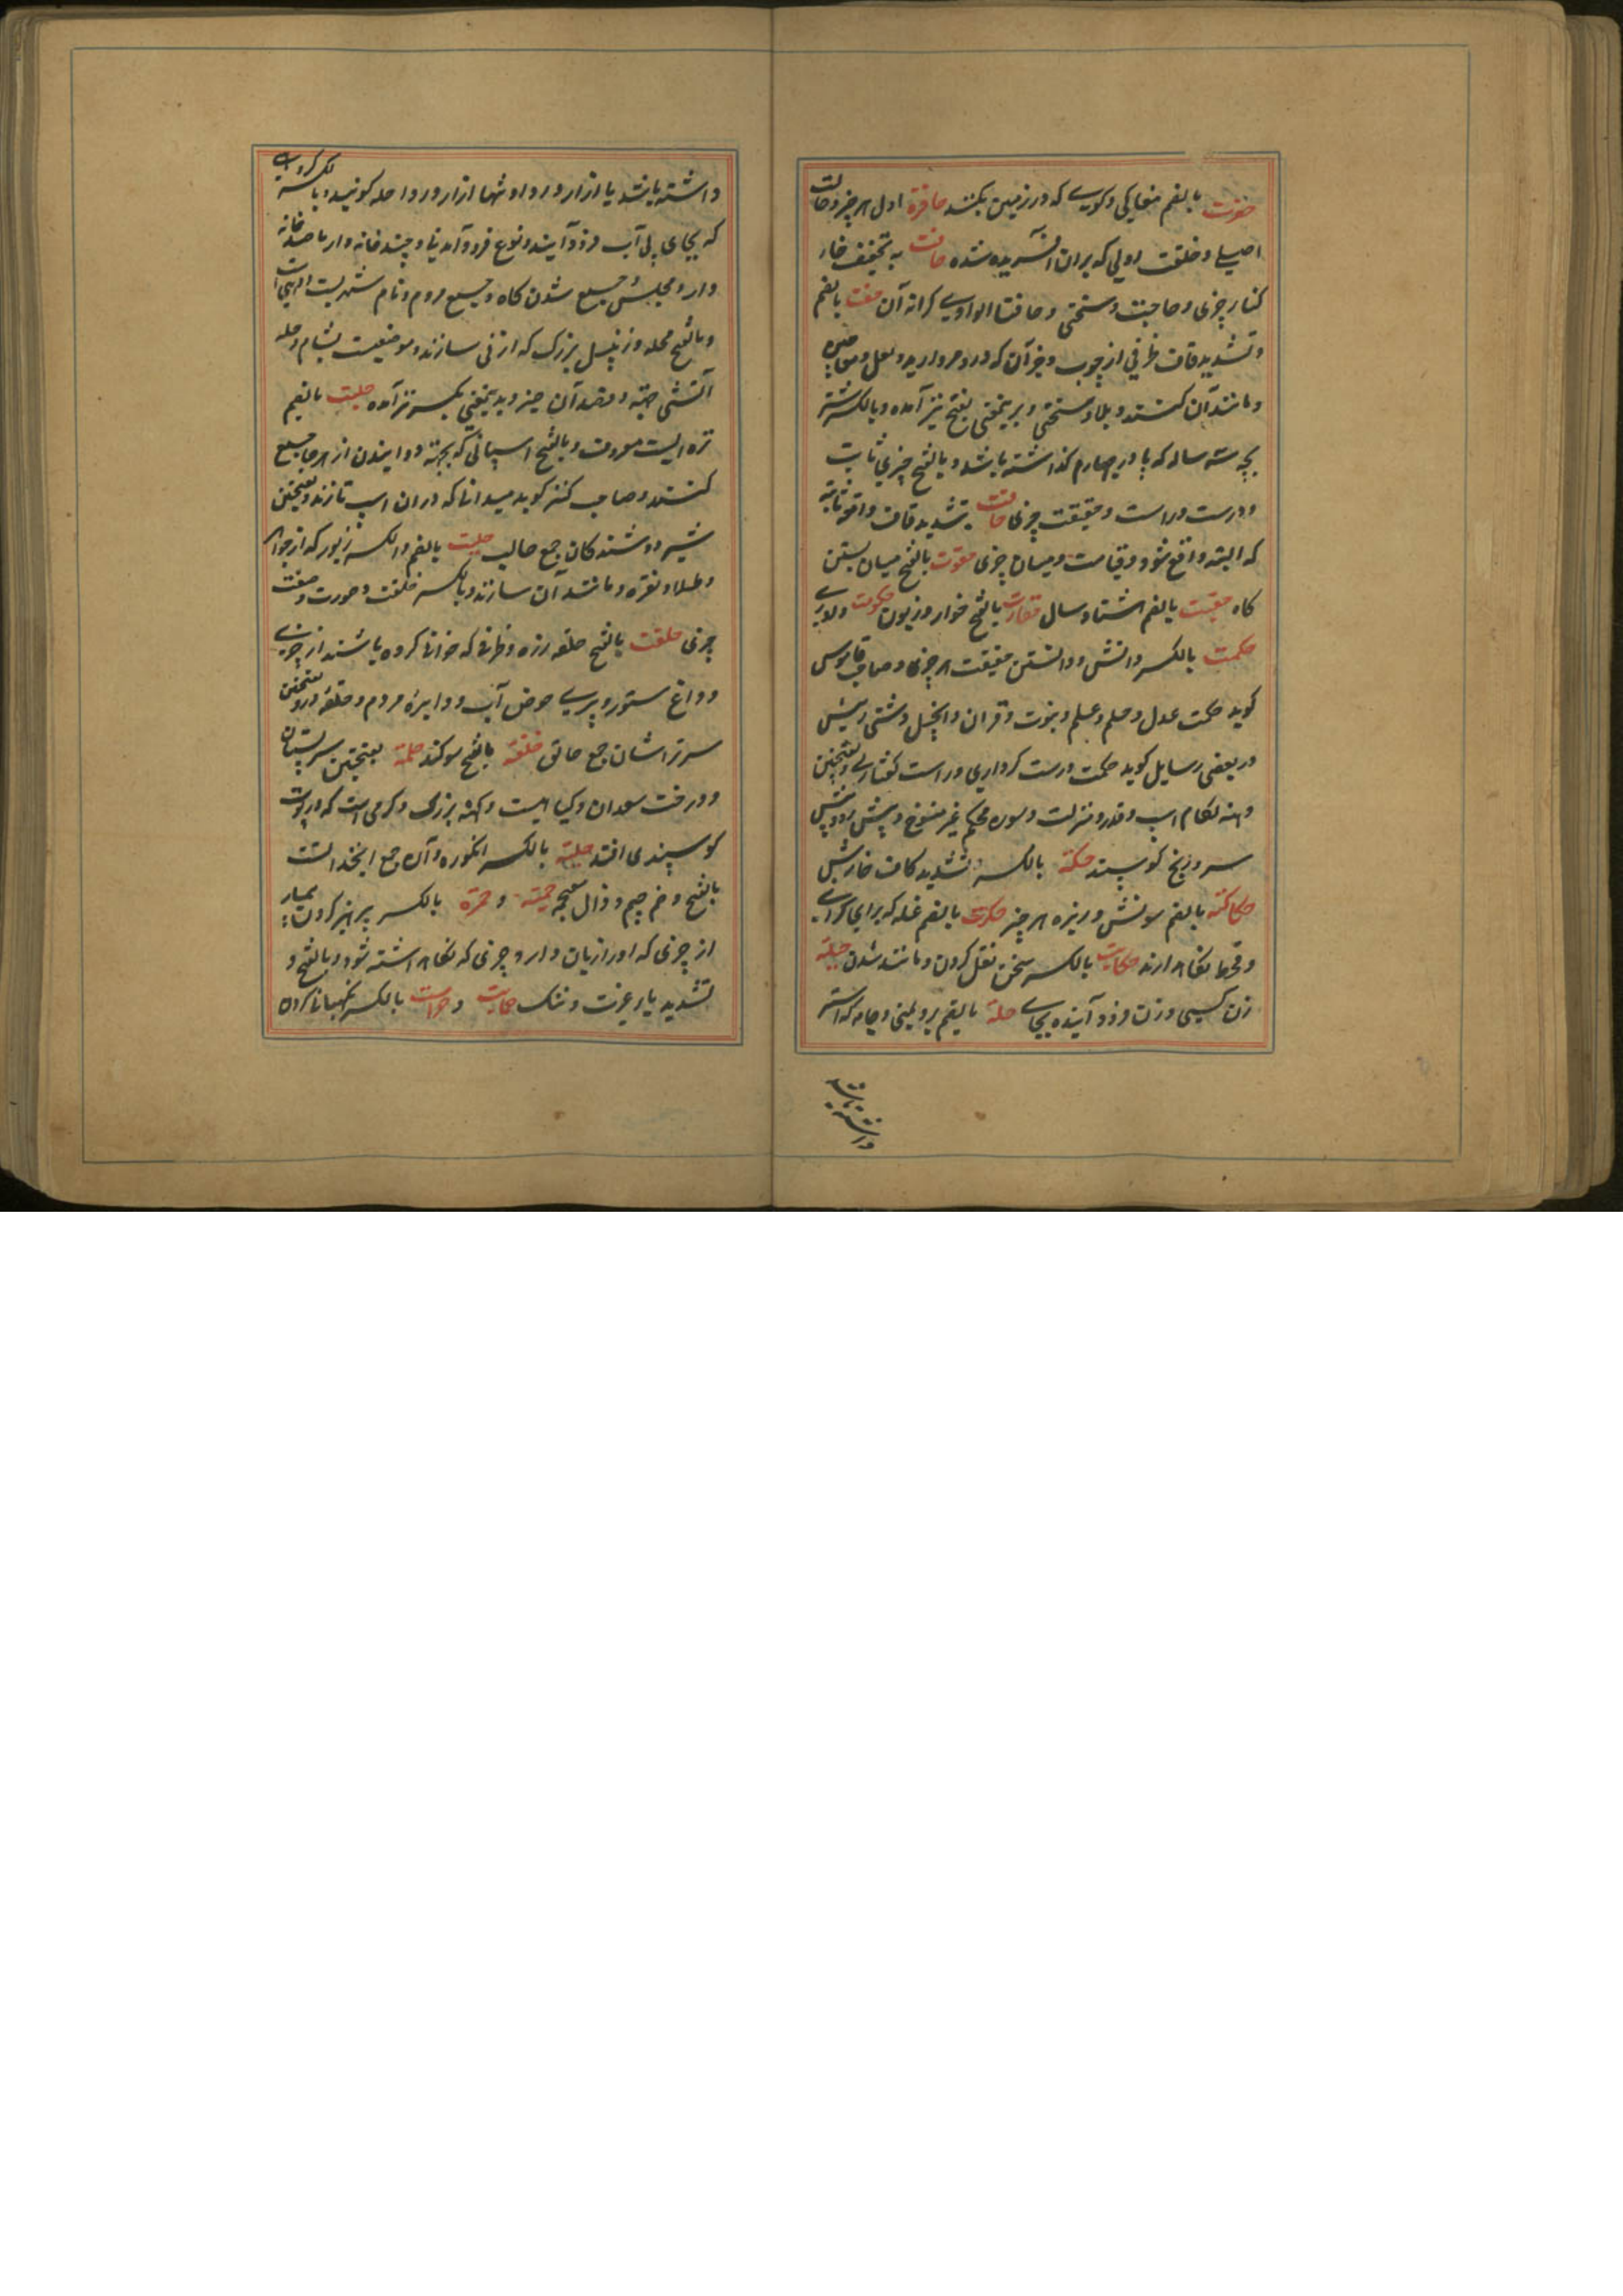 حفرت بالضم مغاکی و کوی که در زمین بکنند حافرة اول هر چیز و حالت
اصلی و خلقت اولی که بران آفریده شده حافت به تخفیف فا
کنار چیزی و حاجت و سختی و حافتا الوادی کرانه آن حقت بالضم
و تشدید قاف ظرفی از چوب و جز آن که در و مروارید و لعل و معاجین
و مانند آن کنند و بلا و سختی و برینمعنی بفتح نیز آمده و بالکسر شتر
بچه سه ساله که پا در چهارم گذاشته باشد و بالفتح چیزی ثابت
و درست و راست و حقیقت چیزی حاقت بتشدید قاف واقعه ثابته
که البته واقع شود و قیامت و میان چیزی حقوت بالفتح میان بستن
کاه حقبت بالضم هشتاد سال حقارت بالفتح خوار و زبون حکومت داوری
حکمت بالکسر دانش و دانستن حقیقت هر چیزی و صاحب قاموس
کوید حکمت عدل و حلم و علم و نبوت و قران و انجیل
در بعضی رسایل کوید حکمت درست کرداری و راست کفتاری و بفتحتین
دهنه لکام اسب و قدر و منزلت و سوره محکم غیر منسوخ و پیش
سر و زنخ کوسپند حکة بالکسر و تشدید کاف خارش
حکاکة بالضم سونش و ریزه هر چیز حکرت بالضم غله که برای کرانی
و قحط نکاه دارند حکایت بالکسر سخن نقل کردن و مانند شدن حلیلة
زن کسی و زن فرود آینده بجای حلة بالضم برد یمنی و جامه که استر
داشته باشد
داشته باشد یا ازار و ردا و تنها ازار و ردا حله کویند و بالکسر کروهی
که بجای پی آب فرود آیند و نوع فرود آمدن و چند خانه وار یا صد خانه
وار و مجلس جمیع شدن کاه و جمیع مردم و نام شهریست
و بالفتح محله و زنبیل بزرک که از نی سازند و موضعیست بشام و حله
آتشی جهة و قصد آن چیز و بدینمعنی بکسر نیز آمده حلبت بالضم
تره ایست معروف و بالفتح اسپانی که بجهة دوانیدن از هر جا جمیع
کنند و صاحب کنز کوید میدانی که دران اسپ تازند و بفتحتین
شیر دوشندکان جمع حالب حلیت بالضم والکسر زیور که از جواهر
و طلا و نقره و مانند آن سازند و بالکسر خلقت و صورت و صفت
چیزی حلقت بالفتح حلقه زره و ظرفی که خوانی کرده باشند از چیزی
و داغ ستور و پری حوض آب و دایره مردم و حلقه در و بفتحتین
سر تراشان جمع حالق حلفة بالفتح سوکند حلمة بفتحتین سر پستان
و درخت سعدان و کیاهیست و کنه بزرک و کرمی است که در پوست
کوسپند می افتد حلیتة بالکسر انکوزه و آن صمغ انجدانست
بالفتح و ضم جیم و ذال معجمه حمیة و حموة بالکسر پرهیز کردن بیمار
از چیزی که او را زیان دارد و چیزی که نکاه داشته شود و بالفتح و
تشدید یا رعونت و ننک حمایت و حراست بالکسر نکهبانی کردن